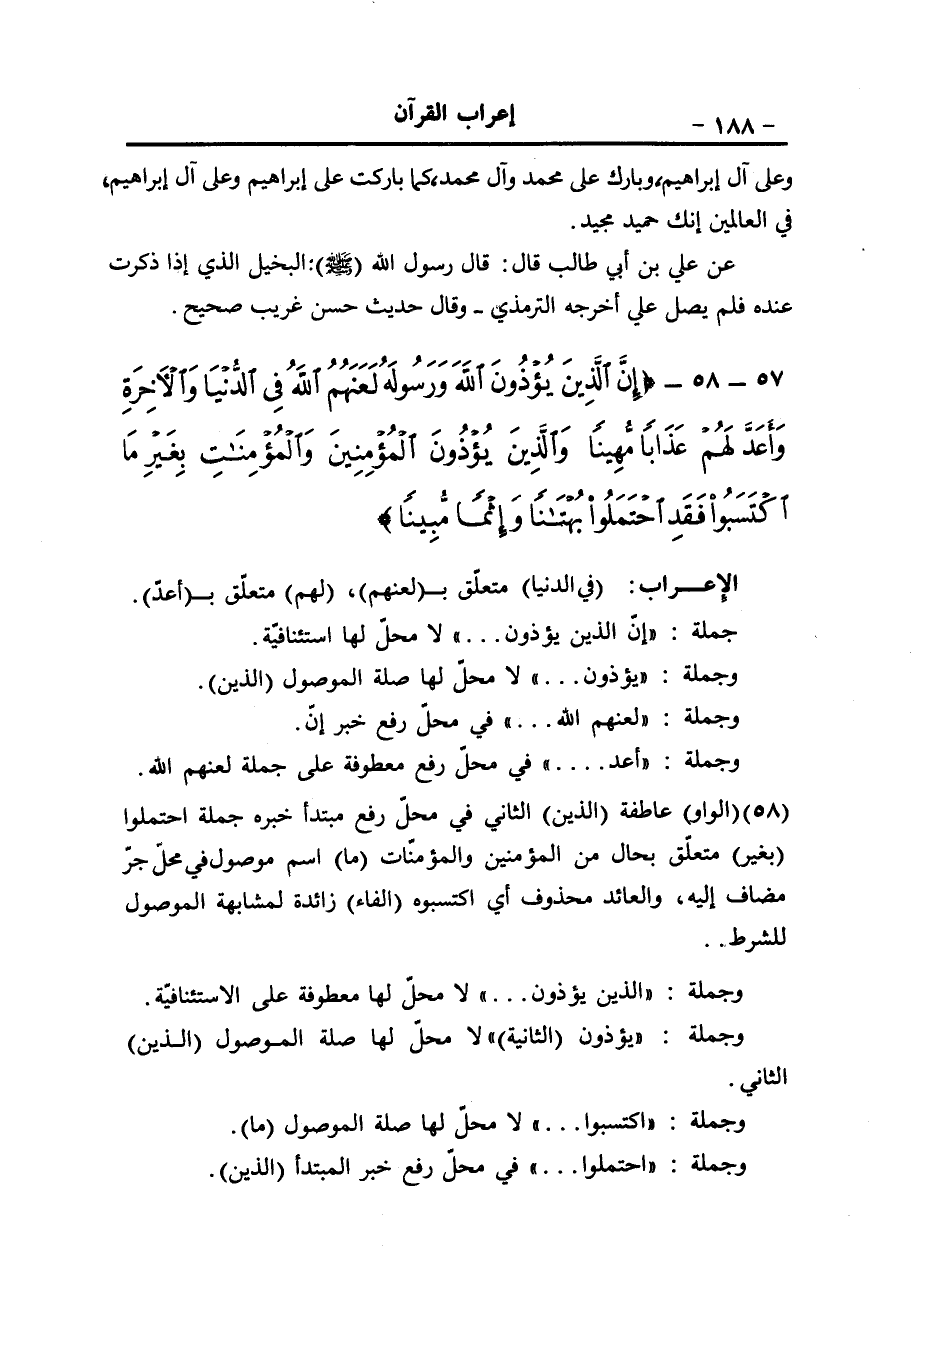 - ١٨٨ -
إعراب القرآن
وعلى آل إبراهيم،وبارك على محمد وآل محمد،كما باركت على إبراهيم وعلى آل إبراهيم،
في العالمين إنك حميد مجيد.
عن علي بن أبي طالب قال: قال رسول الله (ﷺ):البخيل الذي إذا ذكرت
عنده فلم يصل علي أخرجه الترمذي ـ وقال حديث حسن غريب صحيح.
٥٧ ـ ٥٨ ـ ﴿إِنَّ ٱلَّذِينَ يُؤْذُونَ ٱللَّهَ وَرَسُولَهُۥ لَعَنَهُمُ ٱللَّهُ فِى ٱلدُّنْيَا وَٱلْأَخِرَةِ
وَأَعَدَّ لَهُمْ عَذَابًا مُّهِينًا وَٱلَّذِينَ يُؤْذُونَ ٱلْمُؤْمِنِينَ وَٱلْمُؤْمِنَٰتِ بِغَيْرِ مَا
ٱكْتَسَبُواْ فَقَدِ ٱحْتَمَلُواْ بُهْتَٰنًا وَإِثْمًا مُّبِينًا﴾
الإعـــراب: (في الدنيا) متعلّق بـ(لعنهم)، (لهم) متعلّق بـ(أعدّ).
جملة : «إنّ الذين يؤذون...» لا محلّ لها استئنافيّة.
وجملة : «يؤذون...» لا محلّ لها صلة الموصول (الذين).
وجملة : «لعنهم الله...» في محلّ رفع خبر إنّ.
وجملة : «أعد....» في محلّ رفع معطوفة على جملة لعنهم الله.
(٥٨)(الواو) عاطفة (الذين) الثاني في محلّ رفع مبتدأ خبره جملة احتملوا
(بغير) متعلّق بحال من المؤمنين والمؤمنّات (ما) اسم موصول في محلّ جرّ
مضاف إليه، والعائد محذوف أي اكتسبوه (الفاء) زائدة لمشابهة الموصول
للشرط..
وجملة : «الذين يؤذون...» لا محلّ لها معطوفة على الاستئنافيّة.
وجملة : «يؤذون (الثانية)» لا محلّ لها صلة المـوصول (الـذين)
الثاني.
وجملة : «اكتسبوا...» لا محلّ لها صلة الموصول (ما).
وجملة : «احتملوا...» في محلّ رفع خبر المبتدأ (الذين).